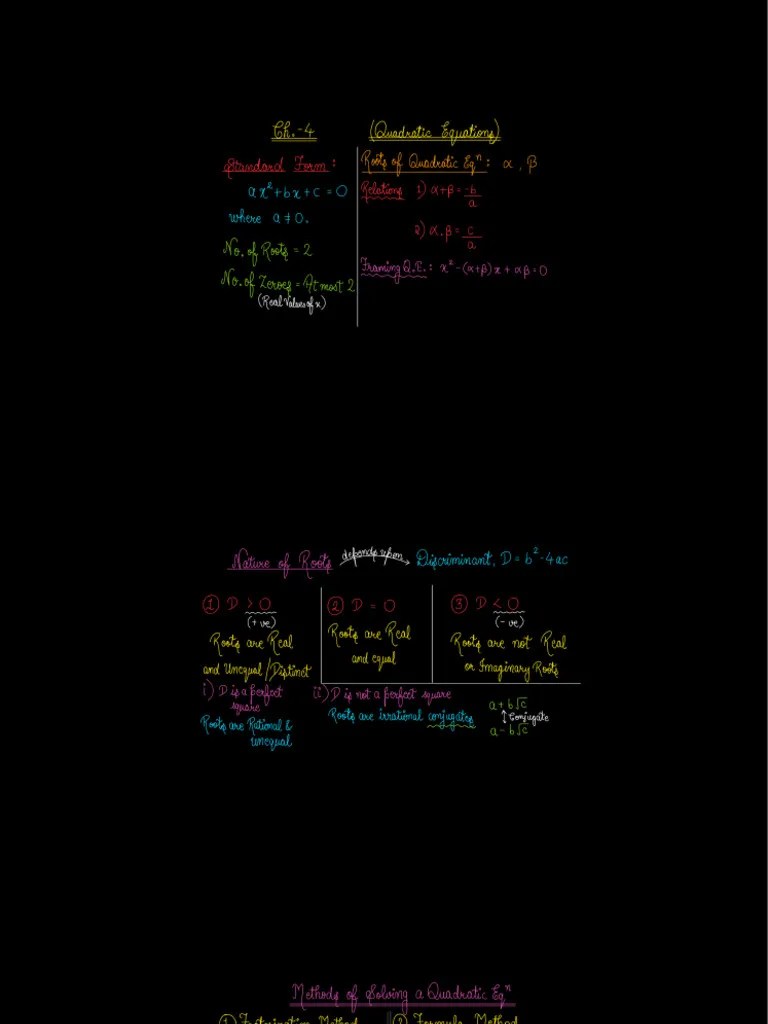 Ch.-4 (Quadratic Equations)
Standard Form:
ax²+bx+c=0
where a≠0.
No. of Roots = 2
No. of Zeroes = At most 2
(Real Values of x)
Roots of Quadratic Eqⁿ: α, β
Relations 1) α+β = -b/a
2) α.β = c/a
Framing Q.E.: x²-(α+β)x + αβ=0
Nature of Roots depends upon Discriminant, D = b²-4ac
① D > 0
(+ve)
Roots are Real
and Unequal/Distinct
② D = 0
Roots are Real
and equal
③ D < 0
(-ve)
Roots are not Real
or Imaginary Roots
i) D is a perfect
square
Roots are Rational &
unequal
ii) D is not a perfect square
Roots are irrational conjugates
a+b√c
↕ Conjugate
a-b√c
Methods of Solving a Quadratic Eqⁿ
① Factorisation Method
② Formula Method